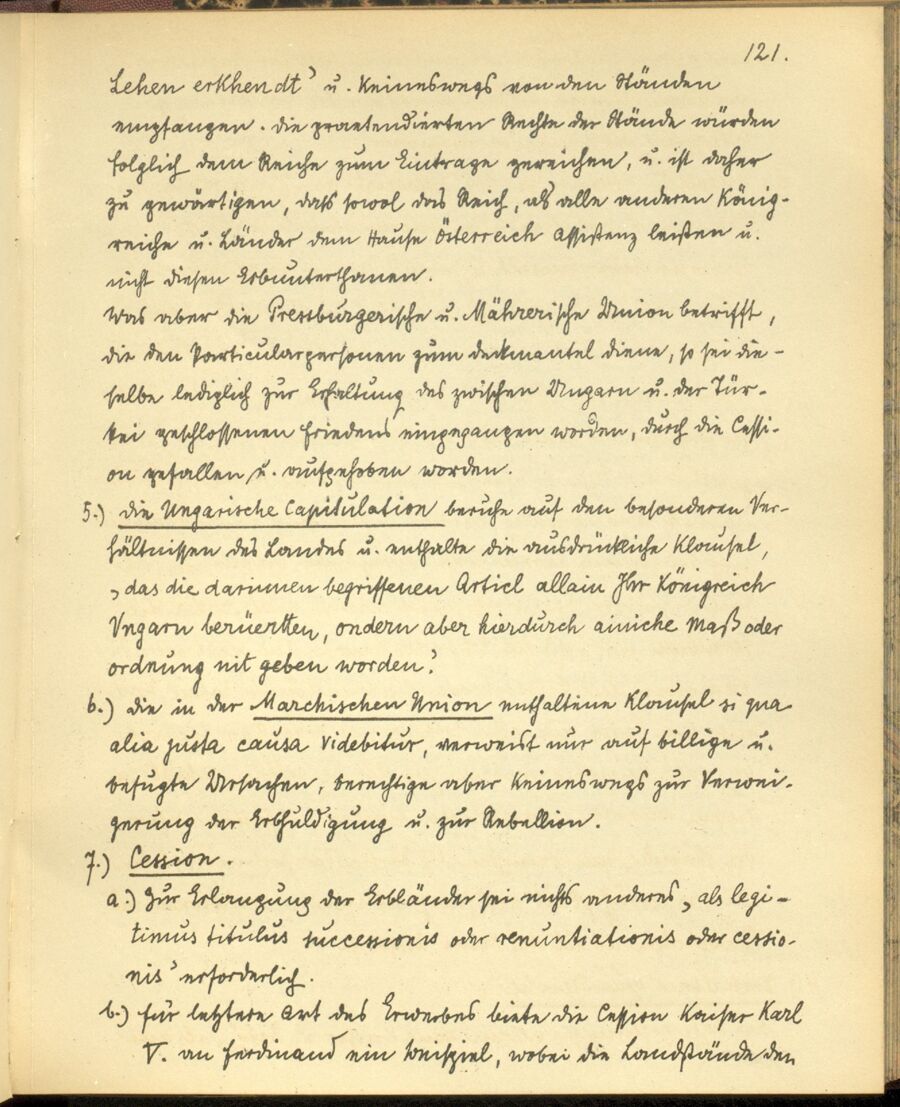 121.
Lehen erkhendt' u. keineswegs von den Ständen
empfangen. Die praetendierten Rechte der Stände würden
folglich dem Reiche zum Eintrage gereichen, u. ist daher
zu gewärtigen, dass sowol das Reich, als alle anderen König-
reiche u. Länder dem Hause Österreich Assistenz leisten u.
nicht diesen Erbunterthanen.
Was aber die Pressburgerische u. Mährerische Union betrifft,
die den Particularpersonen zum Deckmantel diene, so sei die-
selbe lediglich zur Erhaltung des zwischen Ungarn u. der Tür-
kei geschlossenen Friedens eingegangen worden, durch die Cessi-
on gefallen u. aufgehoben worden.
5.) Die Ungarische Capitulation beruhe auf den besonderen Ver-
hältnissen des Landes u. enthalte die ausdrückliche Klausel,
„das die darinnen begriffenen Articl allain Ihr Königreich
Vngarn berüertten, ondern aber hierdurch ainiche Maß oder
ordnung nit geben worden".
6.) Die in der Marchischen Union enthaltene Klausel si qua
alia justa causa videbitur, verweist nur auf billige u.
befugte Ursachen, berechtige aber keineswegs zur Verwei-
gerung der Erbhuldigung u. zur Rebellion.
7.) Cession.
a.) Zur Erlangung der Erbländer sei nichts anderes, „als legi-
timus titulus successionis oder renuntiationis oder cessio-
nis' erforderlich.
b.) Für letztere Art des Erwerbes biete die Cession Kaiser Karl
V. an Ferdinand ein Beispiel, wobei die Landstände den